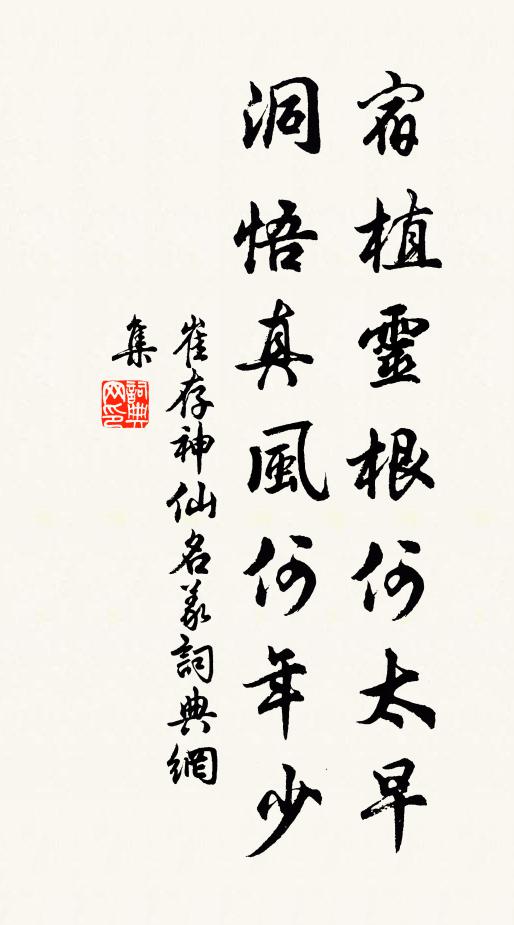 宿植靈根何太早
洞悟真風何年少
崔存神仙名義詞典網
集
詞典
网印